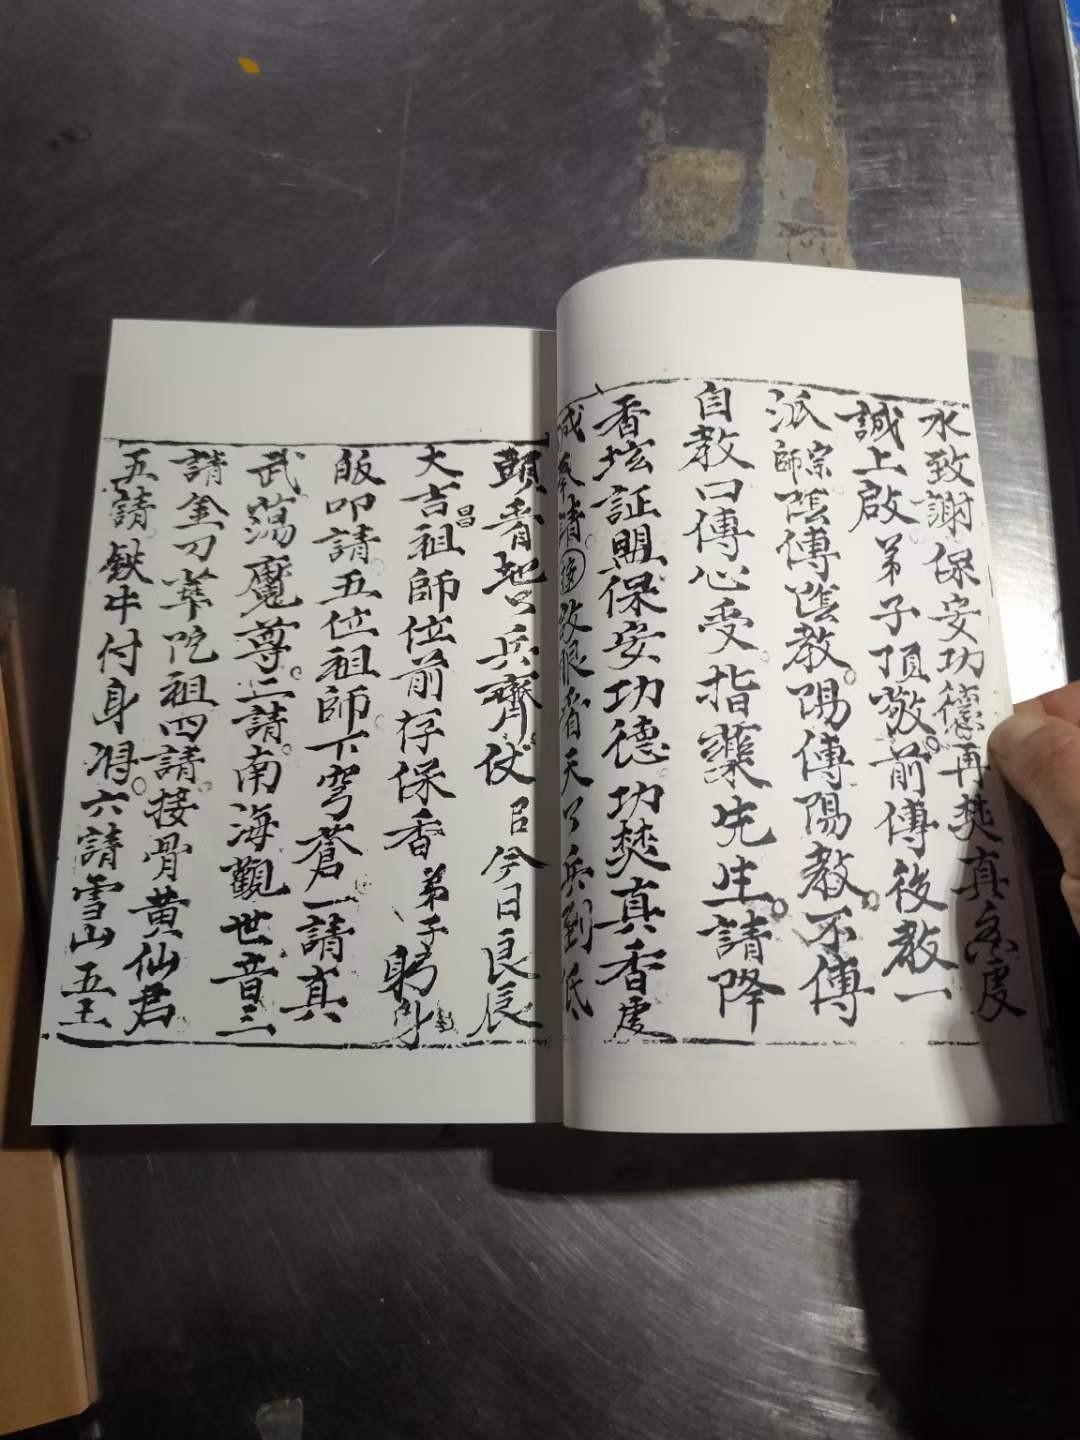 水致謝保安功德再焚真香虔
誠上啟弟子頂敬前傳後教一
派宗師陰傳陰教陽傳陽教不傳
自教口傳心受指藥先生請降
香坛証盟保安功德功焚真香虔
誠奉請改眼看天公兵到低
頭看地公兵齊伏㠯今日良辰
大吉昌祖師位前存保香弟子躬身
皈叩請五位祖師下穹蒼一請真
武蕩魔尊二請南海觀世音三
請金刀華陀祖四請接骨黄仙君
五請鉄牛付身淂六請雪山五王